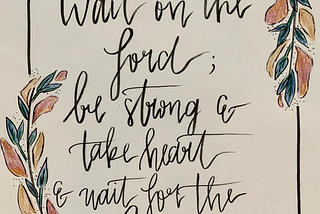 Wait on the
Lord;
be strong &
take heart
& wait for the